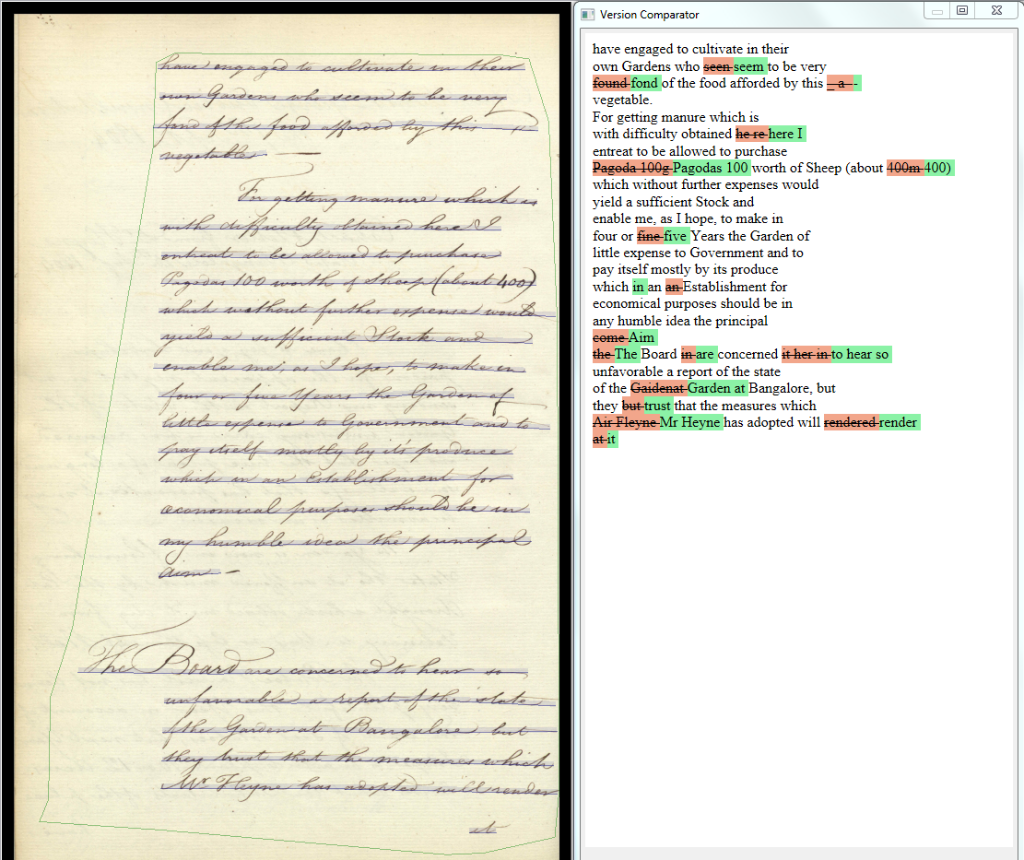 have engaged to cultivate in their
own Gardens who seem to be very
fond of the food afforded by this
vegetable —
For getting manure which is
with difficulty obtained here I
entreat to be allowed to purchase
Pagodas 100 worth of Sheep (about 400)
which without further expense would
yield a sufficient Stock and
enable me, as I hope, to make in
four or five Years the Garden of
little expense to Government and to
pay itself mostly by it's produce
which in an Establishment for
œconomical purposes should be in
my humble idea the principal
aim —
The Board are concerned to hear so
unfavorable a report of the state
of the Garden at Bangalore but
they trust that the measures which
Mr Heyne has adopted will render
it
Version Comparator
have engaged to cultivate in their
own Gardens who seen seem to be very
found fond of the food afforded by this _ a - -
vegetable.
For getting manure which is
with difficulty obtained he re here I
entreat to be allowed to purchase
Pagoda 100g Pagodas 100 worth of Sheep (about 400m 400)
which without further expenses would
yield a sufficient Stock and
enable me, as I hope, to make in
four or fine five Years the Garden of
little expense to Government and to
pay itself mostly by its produce
which in an an Establishment for
economical purposes should be in
any humble idea the principal
come Aim
the The Board in are concerned it her in to hear so
unfavorable a report of the state
of the Gaidenat Garden at Bangalore, but
they but trust that the measures which
Air Fleyne Mr Heyne has adopted will rendered render
at it